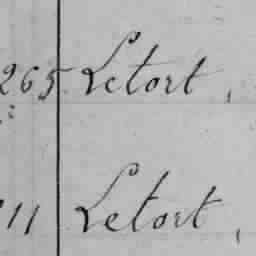 265 Letort,
11 Letort,